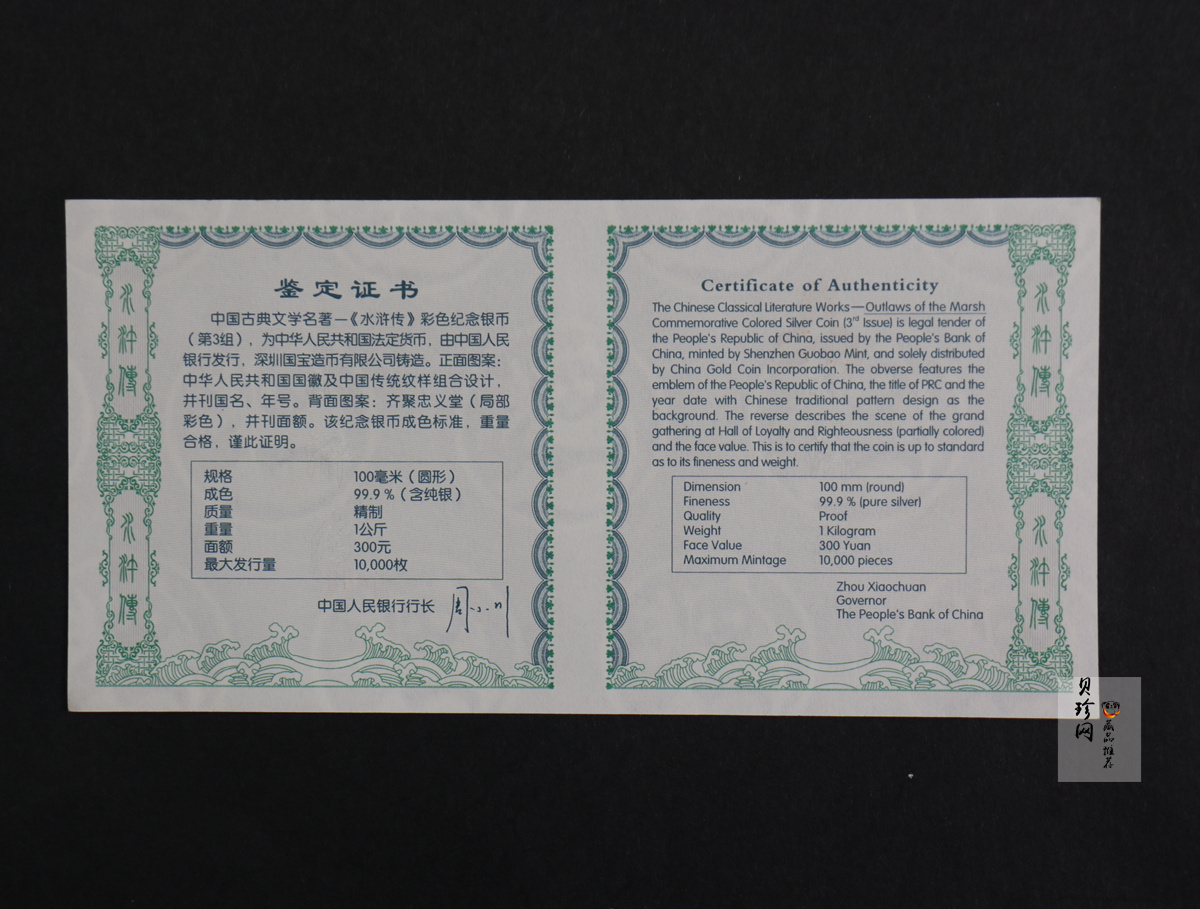 鉴定证书
中国古典文学名著—《水浒传》彩色纪念银币
（第3组），为中华人民共和国法定货币，由中国人民
银行发行，深圳国宝造币有限公司铸造。正面图案：
中华人民共和国国徽及中国传统纹样组合设计，
并刊国名、年号。背面图案：齐聚忠义堂（局部
彩色），并刊面额。该纪念银币成色标准，重量
合格，谨此证明。
规格 100毫米（圆形）
成色 99.9%（含纯银）
质量 精制
重量 1公斤
面额 300元
最大发行量 10,000枚
中国人民银行行长 周小川
水浒傳
水浒傳
Certificate of Authenticity
The Chinese Classical Literature Works—Outlaws of the Marsh
Commemorative Colored Silver Coin (3rd Issue) is legal tender of
the People's Republic of China, issued by the People's Bank of
China, minted by Shenzhen Guobao Mint, and solely distributed
by China Gold Coin Incorporation. The obverse features the
emblem of the People's Republic of China, the title of PRC and the
year date with Chinese traditional pattern design as the
background. The reverse describes the scene of the grand
gathering at Hall of Loyalty and Righteousness (partially colored)
and the face value. This is to certify that the coin is up to standard
as to its fineness and weight.
Dimension 100 mm (round)
Fineness 99.9 % (pure silver)
Quality Proof
Weight 1 Kilogram
Face Value 300 Yuan
Maximum Mintage 10,000 pieces
Zhou Xiaochuan
Governor
The People's Bank of China
水浒傳
水浒傳
贝珍网
藏品推荐